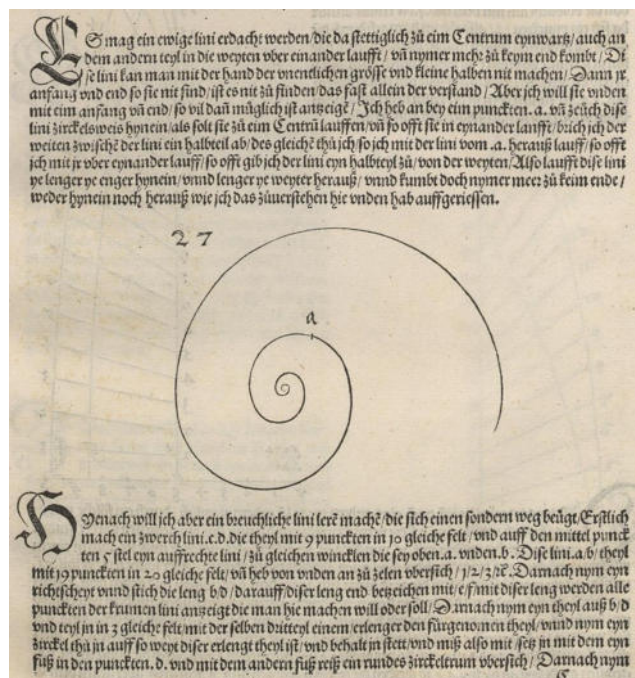 ES mag ein ewige lini erdacht werden/die da stettiglich zů eim Centrum eynwartz/auch an
dem andern teyl in die weyten vber einander laufft/ vn̄ nymer mehr zů keym end kombt/ Di
se lini kan man mit der hand der vnentlichen grösse vnd kleine halben nit machen/ Dann jr
anfang vnd end so sie nit sind/ist es nit zů finden/das fast allein der verstand/ Aber jch will sie vnden
mit eim anfang vn̄ end/so vil dan̄ müglich ist antzeigē/Jch heb an bey eim puncktẽ. a. vn̄ zeüch dise
lini zirckelsweis hynein/als solt sie zů eim Centrū lauffen/vn̄ so offt sie in eynander laufft/brich jch der
weiten zwischē der lini ein halbteil ab/des gleichē thů jch so jch mit der lini vom .a. herauß lauff/so offt
jch mit jr vber eynander lauff/so offt gib jch der lini eyn halbteyl zů/von der weyten/Also laufft dise lini
ye lenger ye enger hynein/vnnd lenger ye weyter herauß/ vnnd kumbt doch nymer meer zů keim ende/
weder hynein noch herauß wie jch das zůuerstehen hie vnden hab auffgeriessen.
27
a
HYenach will jch aber ein breuchliche lini lerē machē/die sich einen sondern weg beügt/Erstlich
mach ein zwerch lini.c.d.die theyl mit 9 punckten in 10 gleiche felt/vnd auff den mittel punck
ten 5 stel eyn auffrechte lini/zů gleichen wincklen die sey oben.a. vnden.b. Dise lini.a.b/ theyl
mit 19 punckten in 20 gleiche felt/vn̄ heb von vnden an zů zelen vbersich/1/2/3/ꝛc. Darnach nym eyn
richtscheyt vnnd stich die leng b/d/darauff/diser leng end betzeichen mit/e/f/mit diser leng werden alle
punckten der krumen lini antzeigt die man hie machen will oder soll/Darnach nym eyn theyl auß b/d
vnd teyl jn in 3 gleiche felt/mit der selben dritteyl einem/erlenger den fürgenomen theyl/vnnd nym eyn
zirckel thů jn auff so weyt diser erlengt theyl ist/vnd behalt jn stett/vnd miß also mit/setz jn mit dem eyn
fuß in den puncktē. d. vnd mit dem andern fuß reiß ein rundes zirckeltrum vbersich/Darnach nym